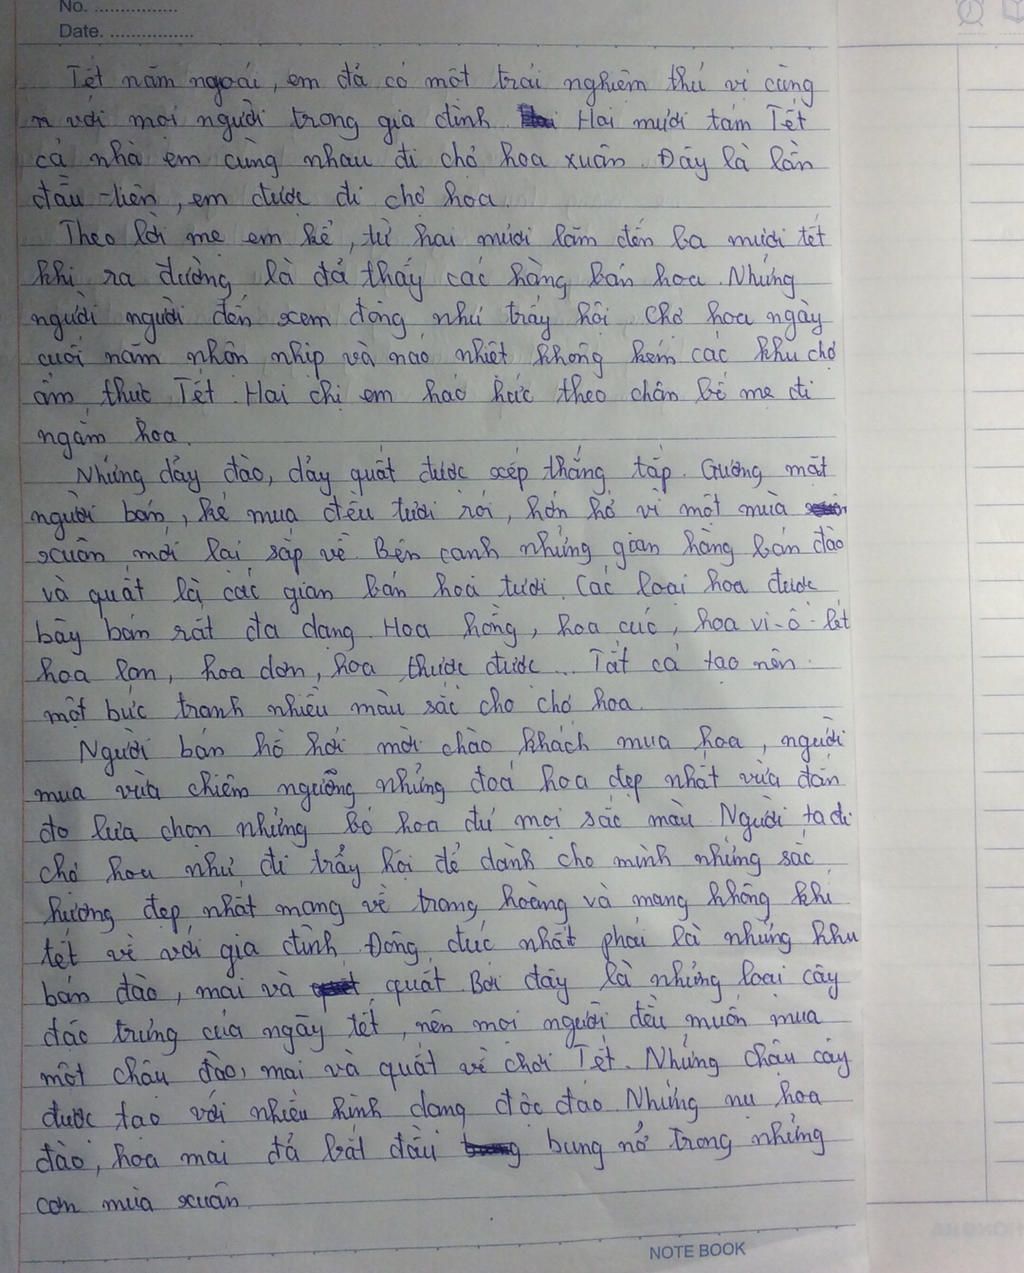 No. ................
Date. ................
Tết năm ngoái, em đã có một trải nghiệm thú vị cùng
với mọi người trong gia đình. Hai mươi tám Tết
cả nhà em cùng nhau đi chợ hoa xuân. Đây là lần
đầu tiên, em được đi chợ hoa.
Theo lời mẹ em kể, từ hai mươi lăm đến ba mươi tết
khi ra đường là đã thấy các hàng bán hoa. Những
người người đến xem đông như trẩy hội. Chợ hoa ngày
cuối năm nhộn nhịp và náo nhiệt không kém các khu chợ
ẩm thực Tết. Hai chị em háo hức theo chân bố mẹ đi
ngắm hoa.
Những dãy đào, dãy quất được xếp thẳng tắp. Gương mặt
người bán, kẻ mua đều tươi rói, hớn hở vì một mùa
xuân mới lại sắp về. Bên cạnh những gian hàng bán đào
và quất là các gian bán hoa tươi. Các loại hoa được
bày bán rất đa dạng. Hoa hồng, hoa cúc, hoa vi-ô-lét
hoa lan, hoa dơn, hoa thược dược... Tất cả tạo nên
một bức tranh nhiều màu sắc cho chợ hoa.
Người bán hồ hởi mời chào khách mua hoa, người
mua vừa chiêm ngưỡng những đoá hoa đẹp nhất vừa đắn
đo lựa chọn những bó hoa đủ mọi sắc màu. Người ta đi
chợ hoa như đi trẩy hội để dành cho mình những sắc
hương đẹp nhất mang về trang hoàng và mang không khí
tết về với gia đình. Đông đúc nhất phải là những khu
bán đào, mai và quất. Bởi đây là những loại cây
đặc trưng của ngày tết, nên mọi người đều muốn mua
một chậu đào, mai và quất về chơi Tết. Những chậu cây
được tạo với nhiều hình dạng độc đáo. Những nụ hoa
đào, hoa mai đã bắt đầu bung nở trong những
cơn mưa xuân.
NOTE BOOK